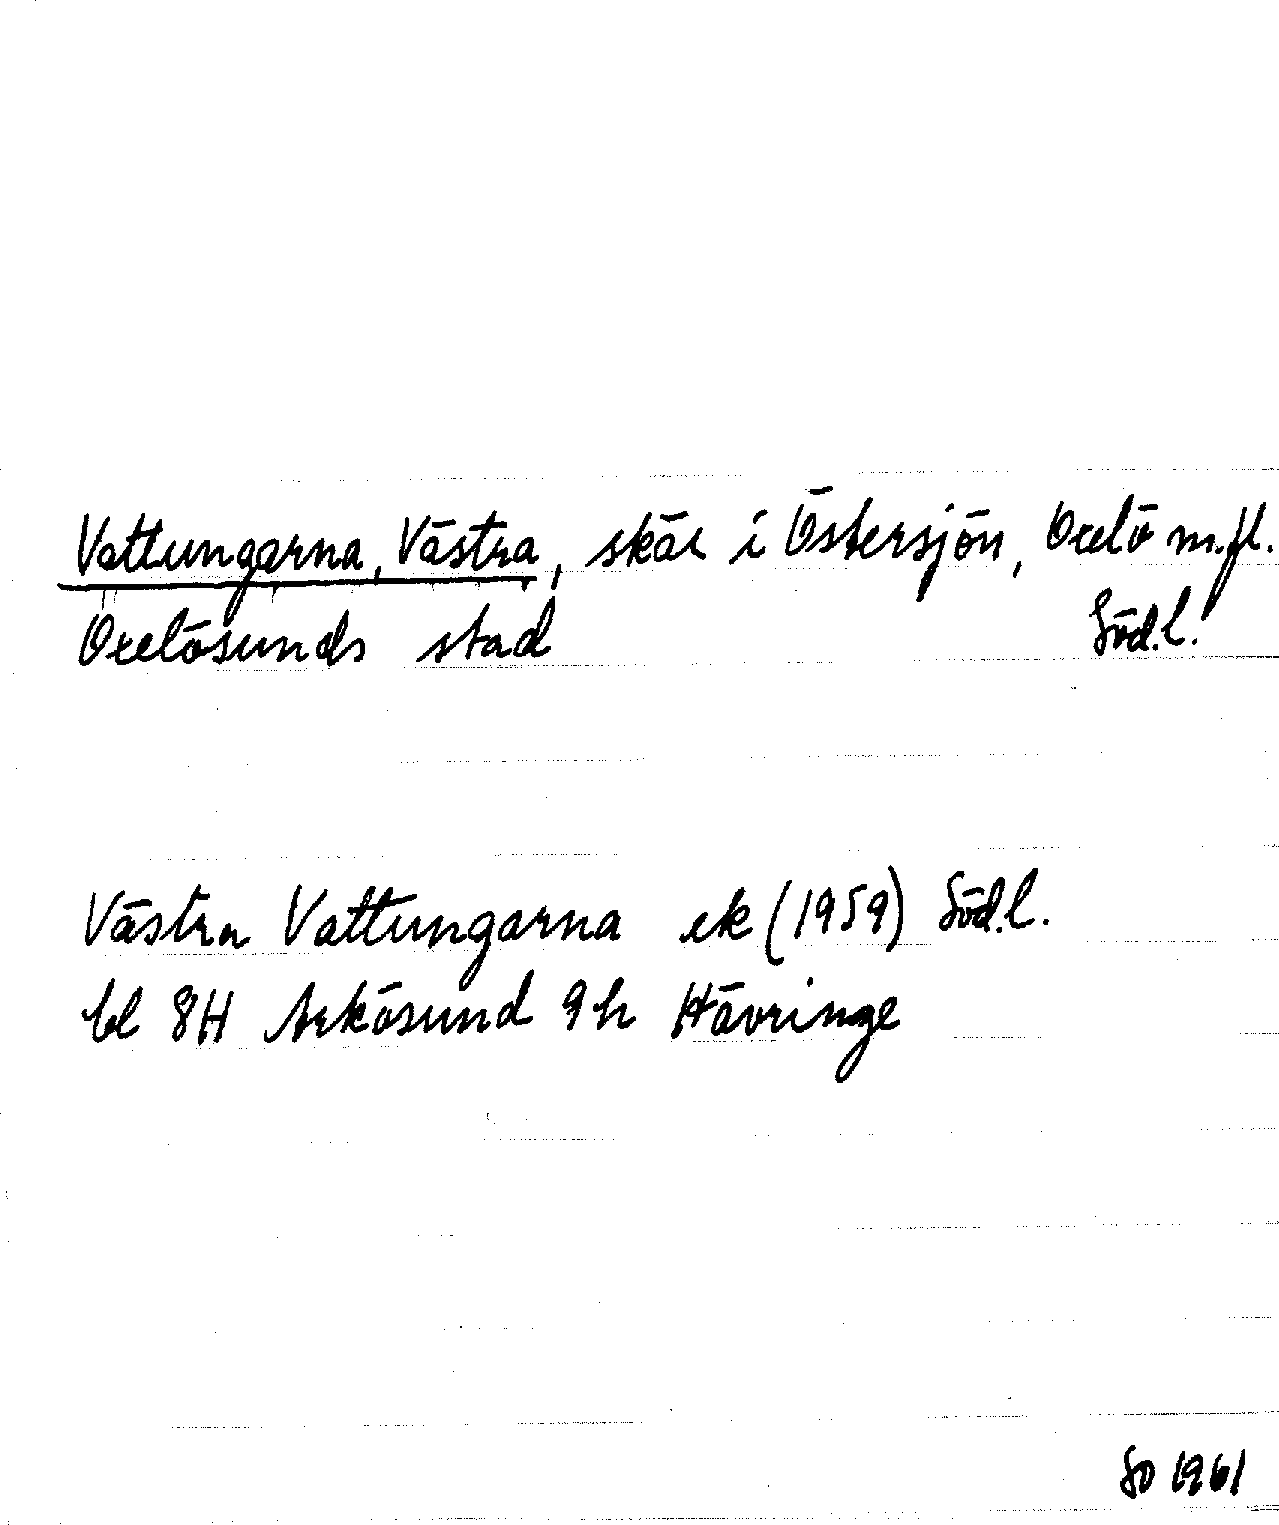 Vattungarna, Västra, skär i Östersjön, Oxelö m.fl.
Oxelösunds stad Söd.l.
Västra Vattungarna ek (1959) Söd.l.
bl 8H Arkösund 9h Hävringe
SO 1961